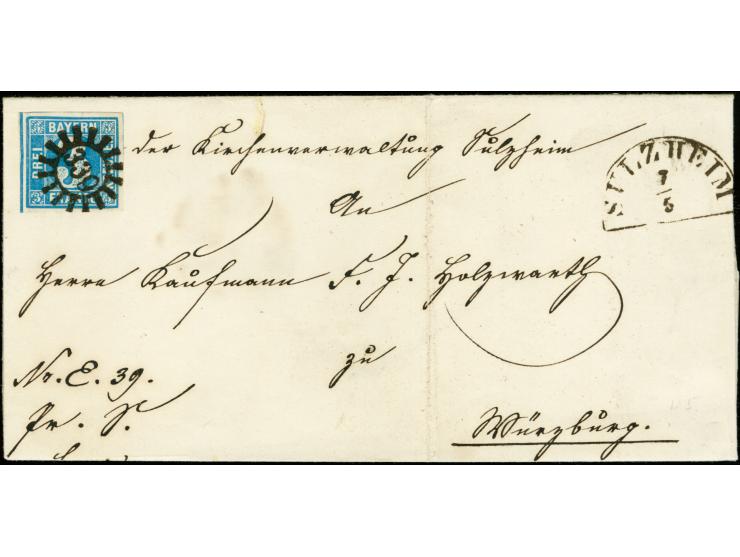 BAYERN
DREI
330
der Kirchenverwaltung Sulzheim
SULZHEIM
7
5
An
Herrn Kaufmann F. J. Holzwarth
zu
No. E. 39.
Pr. S.
Würzburg.